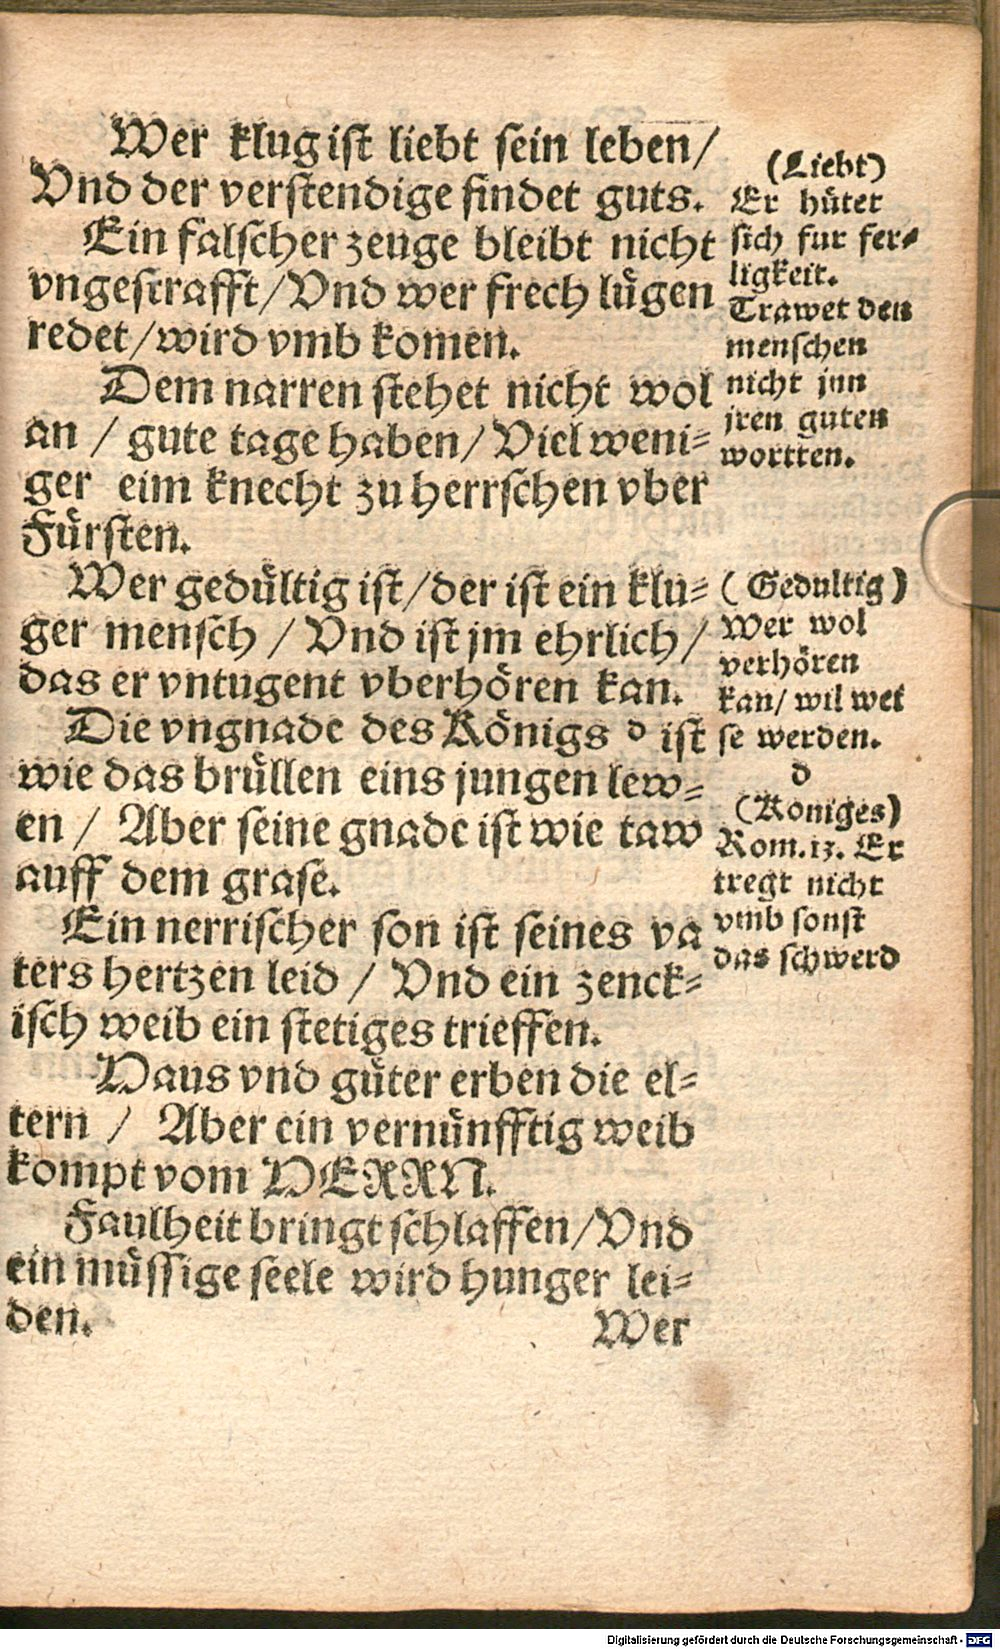 Wer klug ist liebt sein leben/
Vnd der verstendige findet guts.
Ein falscher zeuge bleibt nicht
vngestrafft/Vnd wer frech lügen
redet/wird vmb komen.
Dem narren stehet nicht wol
an / gute tage haben/Viel weni⸗
ger eim knecht zu herrschen vber
Fürsten.
Wer gedültig ist/der ist ein klu⸗
ger mensch /Vnd ist jm ehrlich/
das er vntugent vberhören kan.
Die vngnade des Königs d ist
wie das brüllen eins jungen lew⸗
en / Aber seine gnade ist wie taw
auff dem grase.
Ein nerrischer son ist seines va
ters hertzen leid / Vnd ein zenck⸗
isch weib ein stetiges trieffen.
Haus vnd güter erben die el⸗
tern / Aber ein vernünfftig weib
kompt vom HERRN.
Faulheit bringt schlaffen/Vnd
ein müssige seele wird hunger lei⸗
den.
Wer
(Liebt)
Er hütet
sich fur fer⸗
ligkeit.
Trawet den
menschen
nicht jnn
jren guten
wortten.
(Gedultig)
Wer wol
verhören
kan/ wil wei
se werden.
d
(Koniges)
Rom.13. Er
tregt nicht
vmb sonst
das schwerd
Digitalisierung gefördert durch die Deutsche Forschungsgemeinschaft - DFG